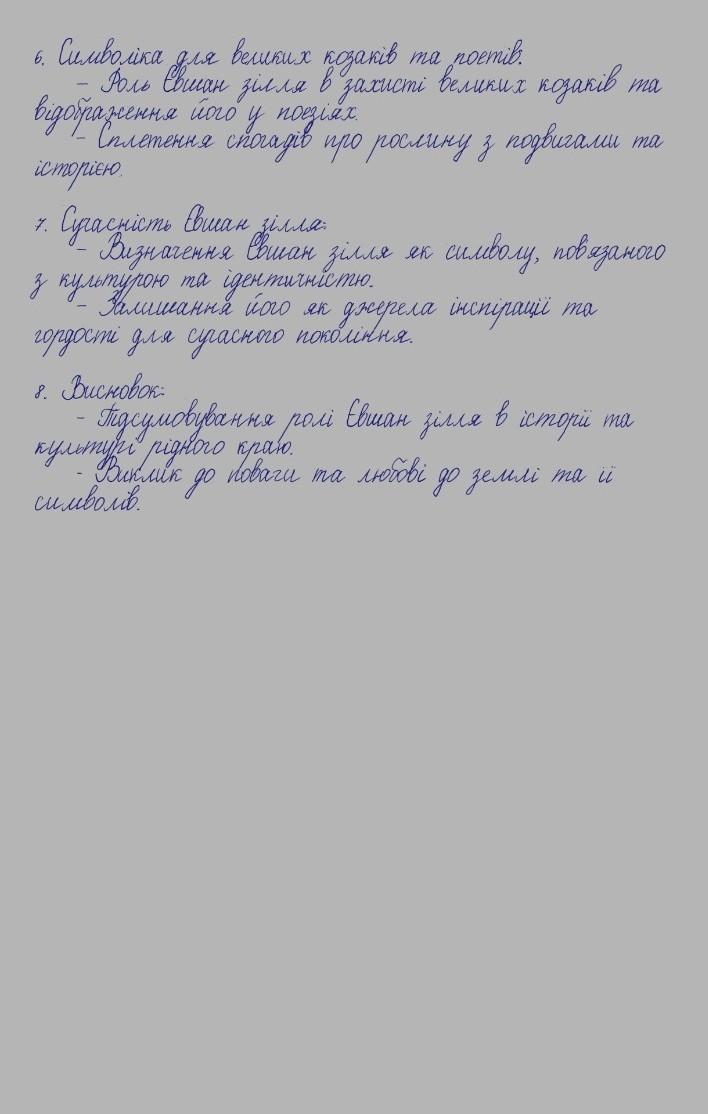 6. Символіка для великих козаків та поетів:
- Роль Євшан зілля в захисті великих козаків та
відображення його у поезіях.
- Сплетення спогадів про рослину з подвигами та
історією.
7. Сучасність Євшан зілля:
- Визначення Євшан зілля як символу, пов'язаного
з культурою та ідентичністю.
- Залишання його як джерела інспірації та
гордості для сучасного покоління.
8. Висновок:
- Підсумовування ролі Євшан зілля в історії та
культурі рідного краю.
- Виклик до поваги та любові до землі та її
символів.